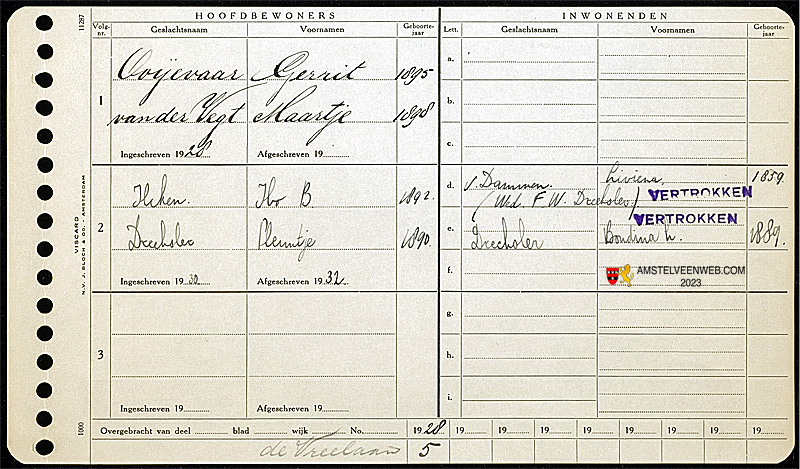 HOOFDBEWONERS
INWONENDEN
11287
Volg-nr. Geslachtsnaam Voornamen Geboorte-jaar
Lett. Geslachtsnaam Voornamen Geboorte-jaar
Ooijevaar Gerrit 1895
1
van der Vegt Maartje 1898
Ingeschreven 1928 Afgeschreven 19
a.
b.
c.
2
Ibo B. 1892.
Drechsler 1890
Ingeschreven 1930 Afgeschreven 1932
d. v. Dammen. Liviena. 1859.
(Wd. F W. Drechsler) VERTROKKEN
VERTROKKEN
e. Drechsler Bondina h. 1889.
f.
AMSTELVEENWEB.COM
2023
3
Ingeschreven 19 Afgeschreven 19
g.
h.
i.
VISCARD
N.V. J. BLOCH & CO. - AMSTERDAM
1000
Overgebracht van deel blad wijk No. 1928 19 19 19 19 19 19 19 19
de Vreelaan 5